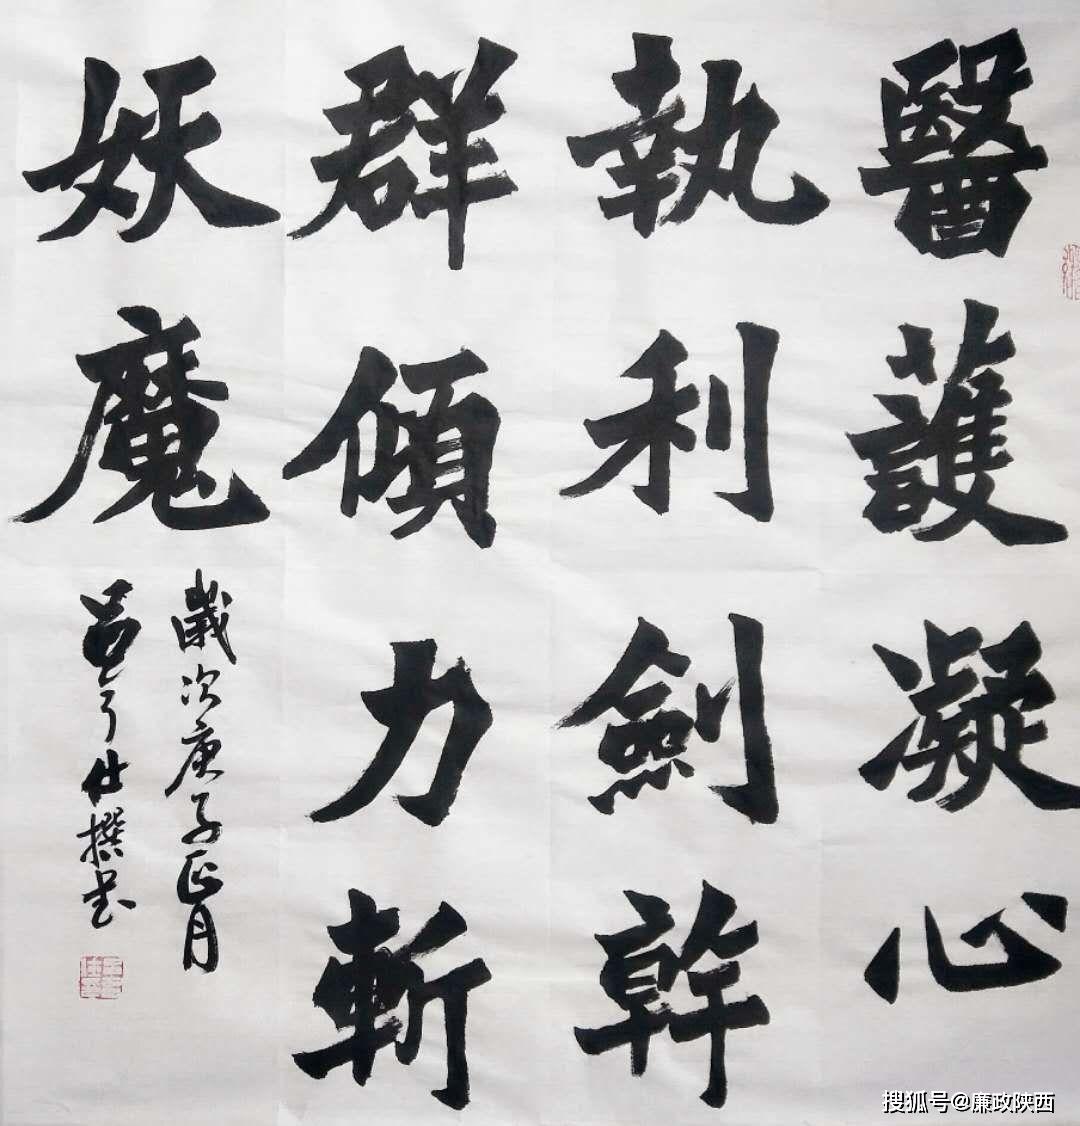 醫護凝心
執利劍幹
群傾力斬
妖魔
歲次庚子正月
撰書
搜狐号@廉政陕西